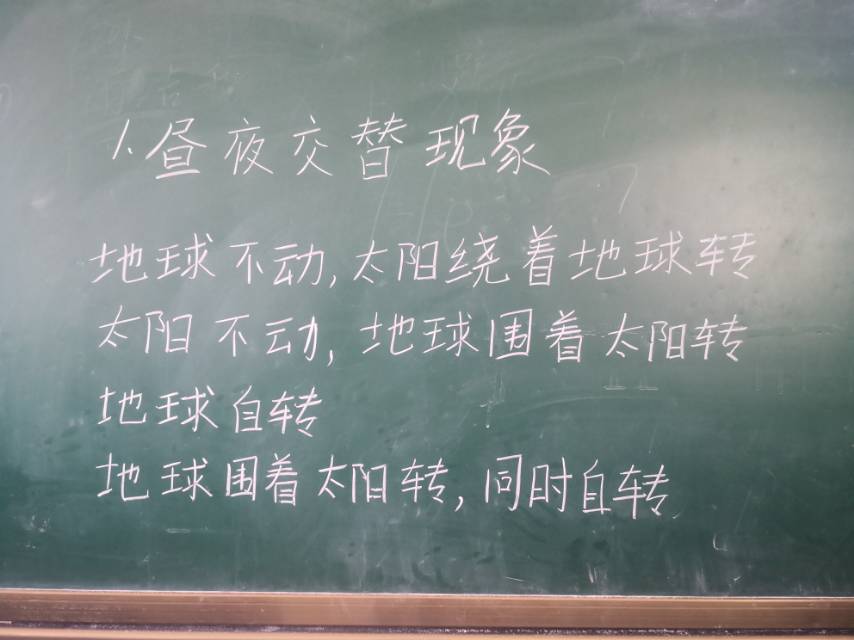 1.昼夜交替现象
地球不动,太阳绕着地球转
太阳不动,地球围着太阳转
地球自转
地球围着太阳转,同时自转